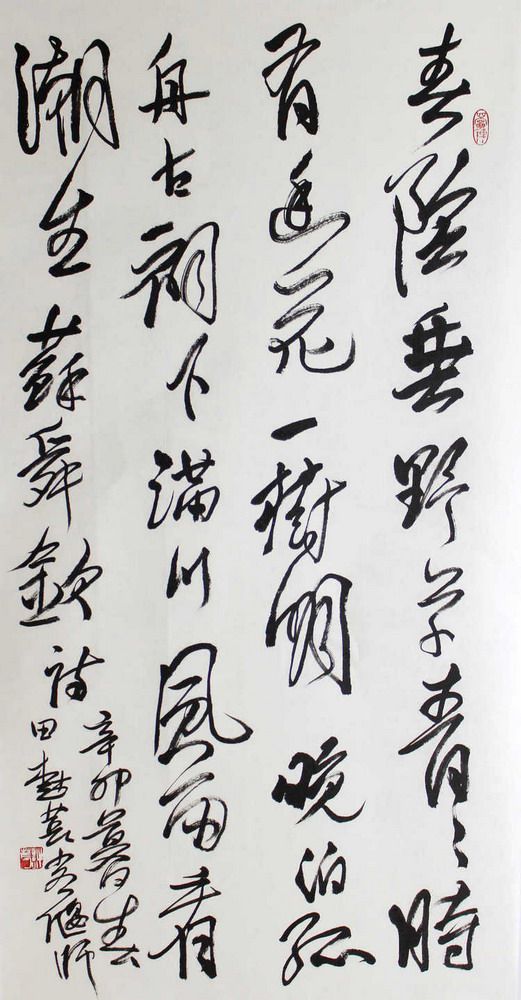 春陰垂野草青〻時
有幽花一樹明晚泊孤
舟古祠下滿川風雨看
潮生蘇舜欽詩
辛卯暮春
田樹萇客偃師